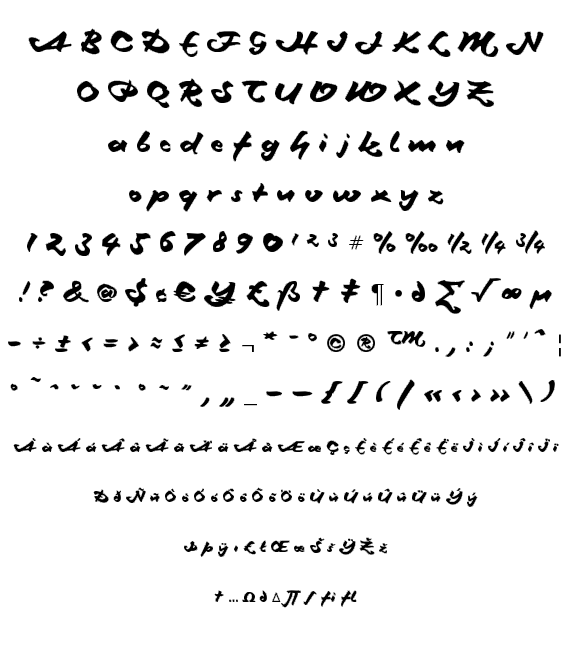 A B C D E F G H I J K L M N
O P Q R S T U V W X Y Z
a b c d e f g h i j k l m n
o p q r s t u v w x y z
1 2 3 4 5 6 7 8 9 0 ¹ ² ³ # % ‰ ½ ¼ ¾
! ? & @ $ ¢ € ¥ £ ß † ‡ ¶ • ∂ ∑ √ ∞ µ
- ÷ ± < = > ≈ ≤ ≠ ≥ ¬ * - ° © ® ™ . , : ; " ' ^ ¦
° ~ ˆ ˘ ˇ ˙ ˚ ~ ˝ ‚ „ _ – — { [ ( / « ‹ › » \ )
À à Á á Â â Ã ã Ä ä Å å Æ æ Ç ç È è É é Ê ê Ë ë Ì ì Í í Î î Ï ï
Ð ð Ñ ñ Ò ò Ó ó Ô ô Õ õ Ö ö Ù ù Ú ú Û û Ü ü Ý ý
Þ þ ÿ ı Ł ł Œ œ Š š Ÿ Ž ž
† … Ω ∂ ∆ ∏ ∫ fi fl